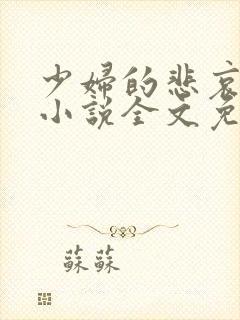 少婦的悲哀
小説全文免
蘇蘇